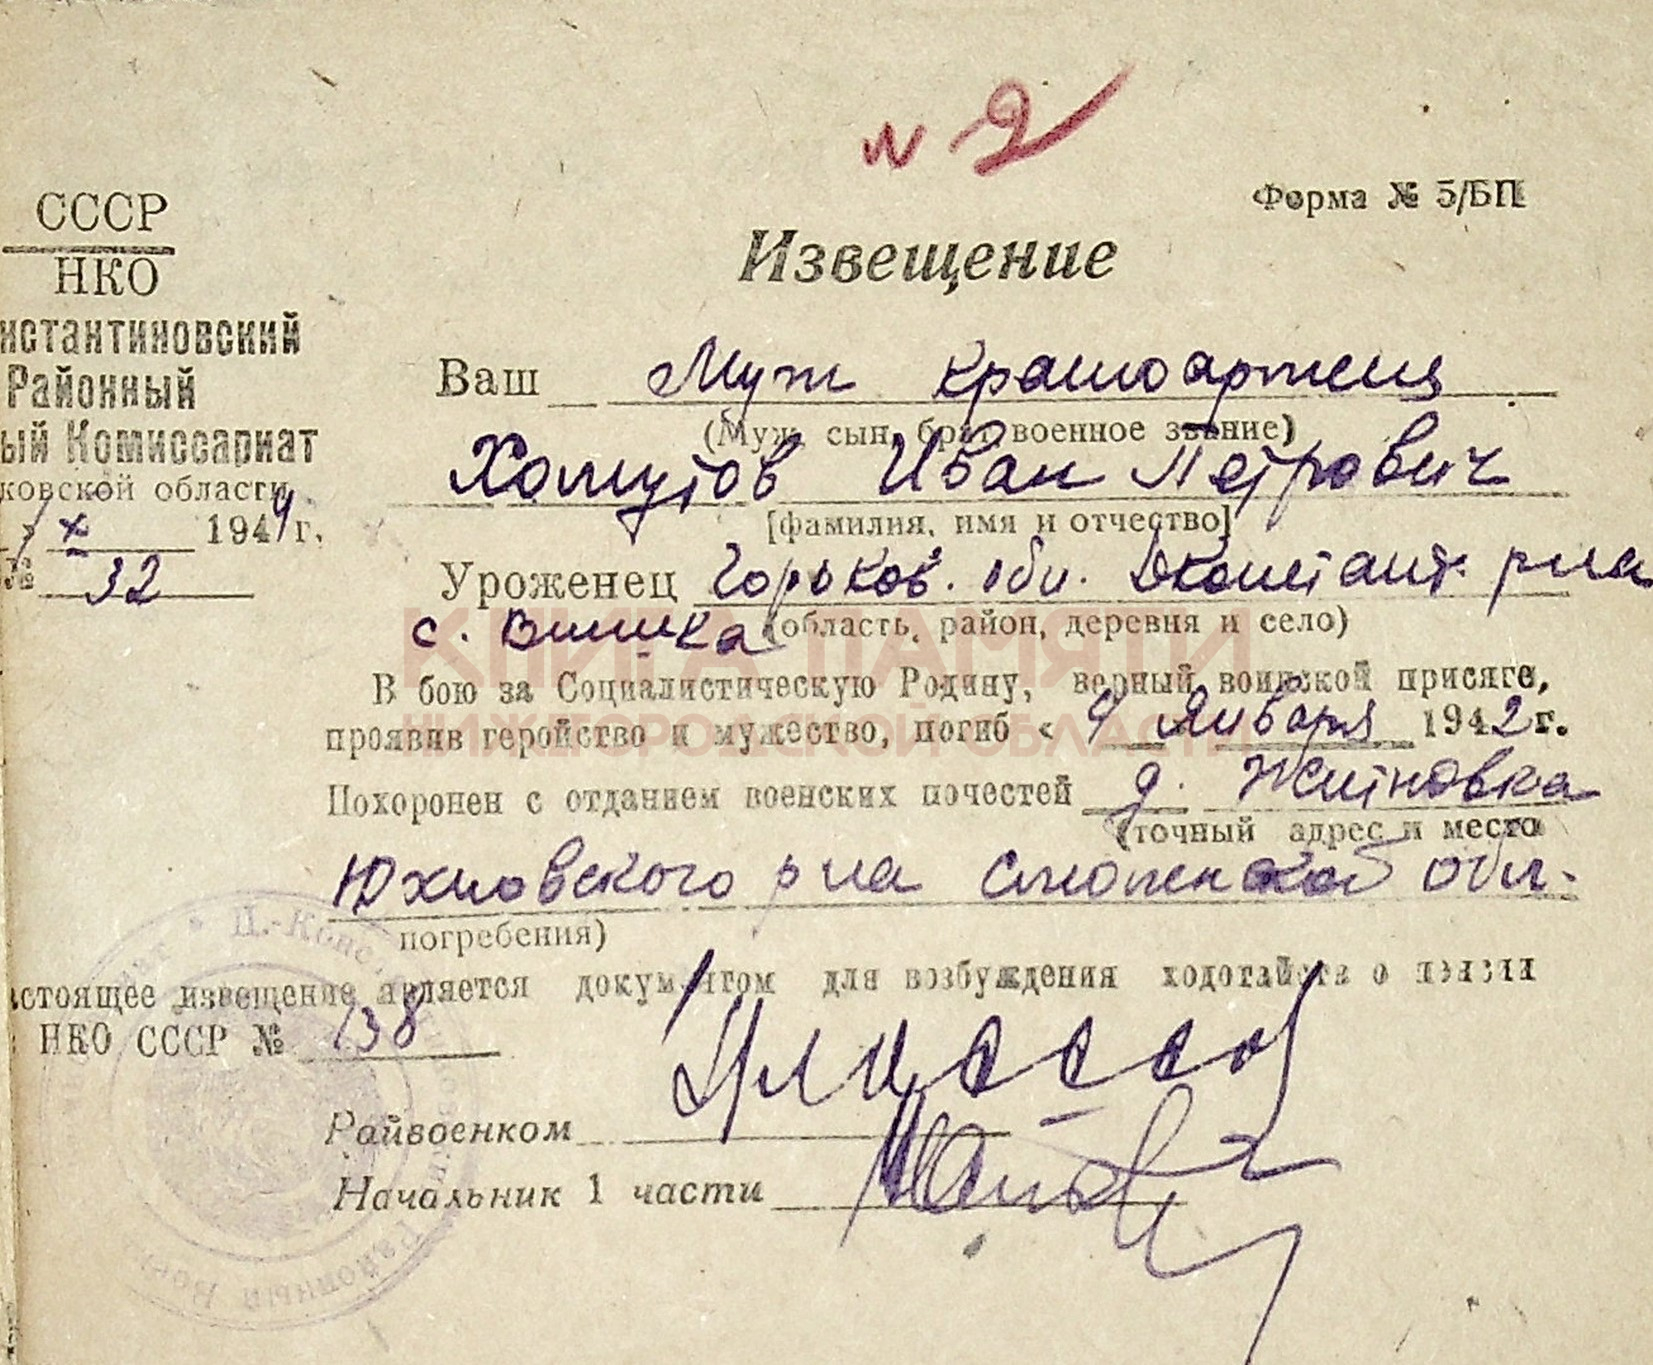 № 2
Форма № 5/БП
СССР
НКО
нстантиновский
Районный
ый Комиссариат
ковской области
1 X 1944 г.
№ 32
Извещение
Ваш Муж красноармеец
(Муж, сын, брат, военное звание)
Хомутов Иван Петрович
[фамилия, имя и отчество]
Уроженец Горьков. обл. Дконстант. р-на
с. (область, район, деревня и село)
В бою за Социалистическую Родину, верный воинской присяге,
проявив геройство и мужество, погиб « 9 Января 1942 г.
Похоронен с отданием военских почестей д. Житновка
(точный адрес и место
Юхновского р-на Смоленской обл.
погребения)
стоящее извещение является документом для возбуждения ходотайств о пенсии
НКО СССР № 138
Райвоенком
Начальник 1 части
КНИГА ПАМЯТИ
НИЖЕГОРОДСКОЙ ОБЛАСТИ